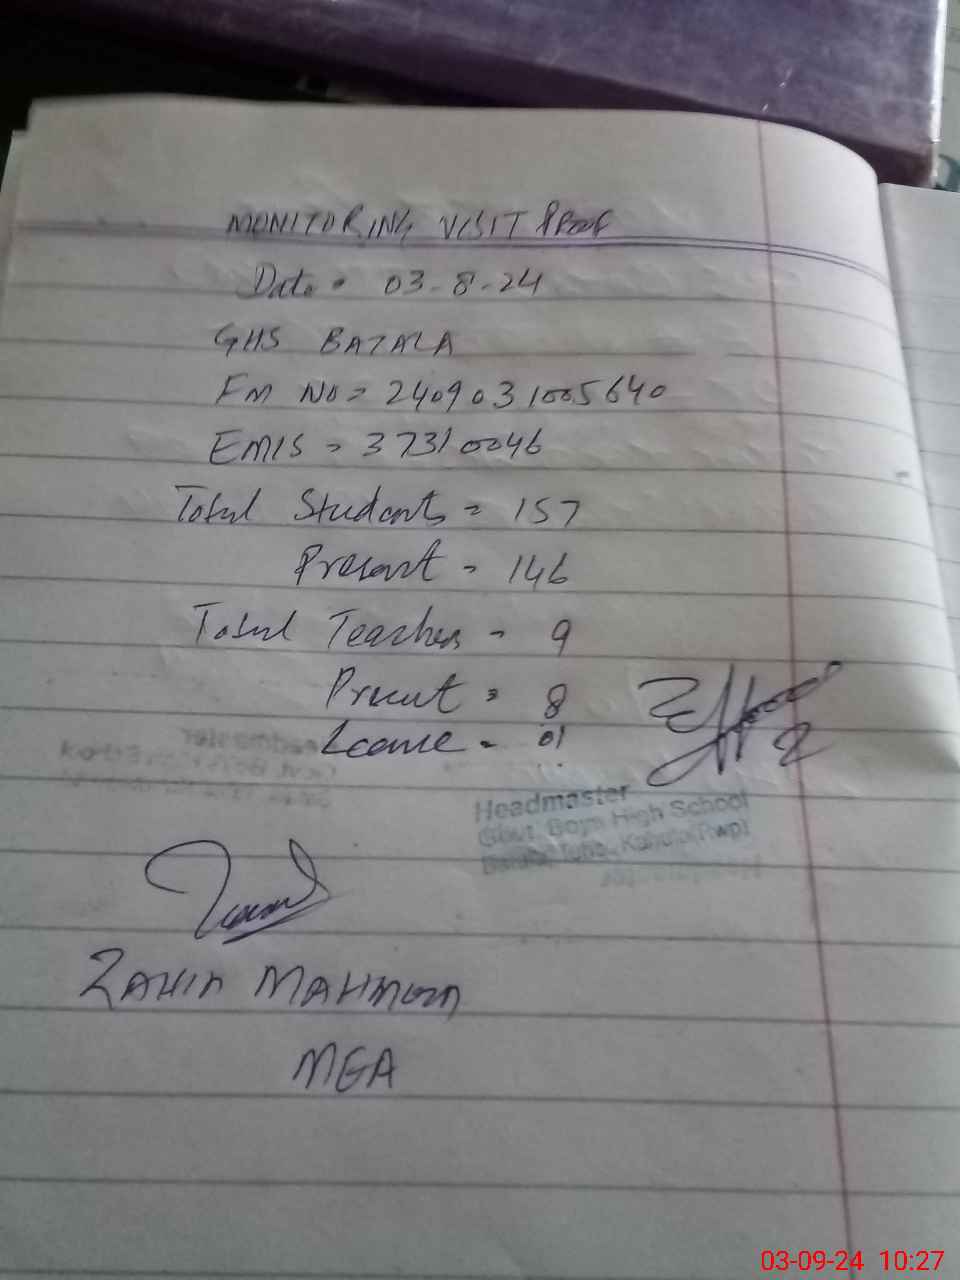 MONITORING VISIT PROOF
Date = 03-8-24
GHS BATALA
FM NO = 2409031005640
EMIS = 37310046
Total Students = 157
Present - 146
Total Teachers - 9
Present = 8
Leave = 01
Headmaster
Govt. Boys High School
Kahuta (Rwp)
ZAHID MAHMOOD
MEA
03-09-24 10:27